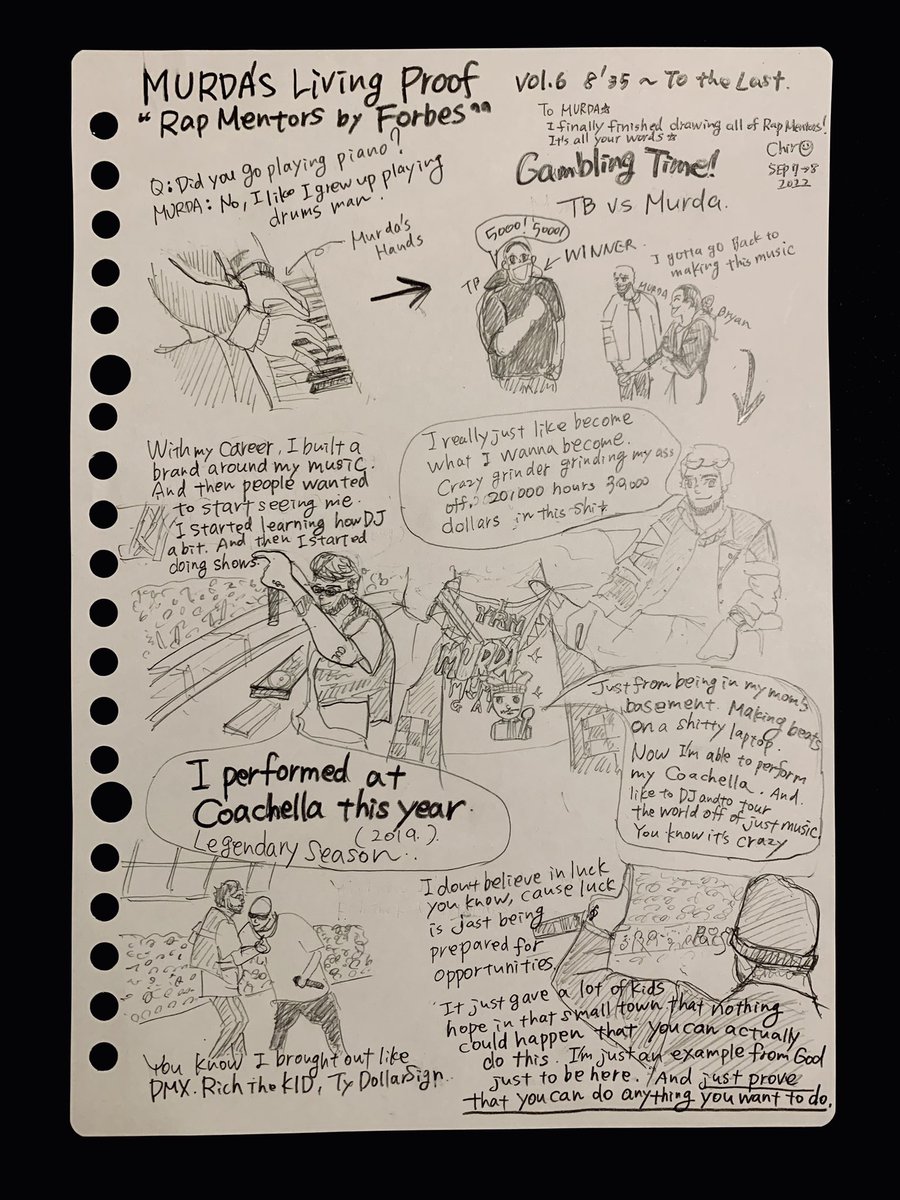 MURDA'S Living Proof
"Rap Mentors by Forbes"
VOL.6 8'35 ~ To the Last.
To MURDA☆
I finally finished drawing all of Rap Mentors!
It's all your words☆
Chiro☺
SEP 7→8
2022
Q: Did you go playing piano?
MURDA: No, I like I grew up playing
drums man.
Murda's
Hands
Gambling Time!
TB vs Murda.
5000! 5000!
TB
WINNER.
I gotta go Back to
making this music
MURDA
Bryan
With my Career, I built a
brand around my music.
And then people wanted
to start seeing me.
I started learning how DJ
a bit. And then I started
doing shows.
I really just like become
what I wanna become.
Crazy grinder grinding my ass
off. 20,000 hours 30,000
dollars in this shit
MURDA
Just from being in my mom's
basement. Making beats
on a shitty laptop.
Now I'm able to perform
my Coachella. And
like to DJ and to tour
the world off of just music
You know it's crazy
I performed at
Coachella this year.
(2019.)
Legendary Season..
I dont believe in luck
you know, cause luck
is jast being
prepared for
opportunities.
It just gave a lot of kids
hope in that small town that nothing
could happen that you can actually
do this. I'm just an example from God
just to be here. And just prove
that you can do anything you want to do.
You know I brought out like
DMX. Rich the KID, Ty DollarSign..